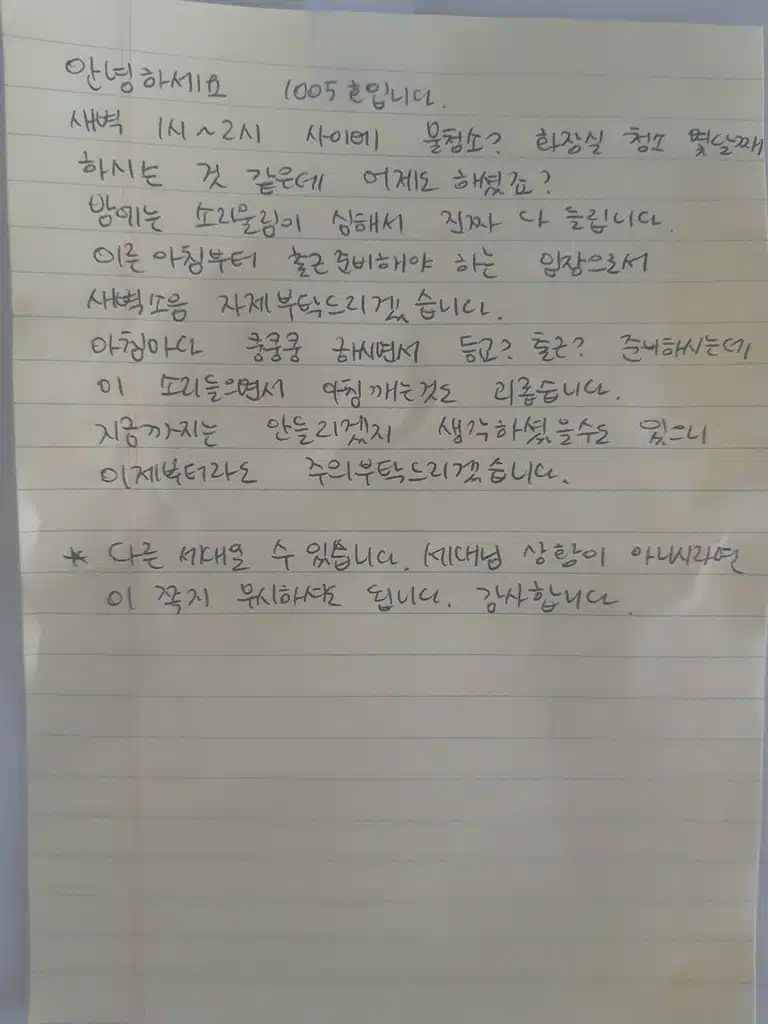 안녕하세요 1005호입니다.
새벽 1시~2시 사이에 물청소? 화장실 청소 몇달째
하시는 것 같은데 어제도 하셨죠?
밤에는 소리울림이 심해서 진짜 다 들립니다.
이른아침부터 출근준비해야 하는 입장으로서
새벽소음 자제부탁드리겠습니다.
아침마다 쿵쿵쿵 하시면서 등교? 출근? 준비하시는데
이 소리들으면서 아침깨는것도 괴롭습니다.
지금까지는 안들리겠지 생각하셨을수도 있으니
이제부터라도 주의부탁드리겠습니다.
* 다른 세대일 수 있습니다. 세대님 상황이 아니시라면
이 쪽지 무시하셔도 됩니다. 감사합니다.